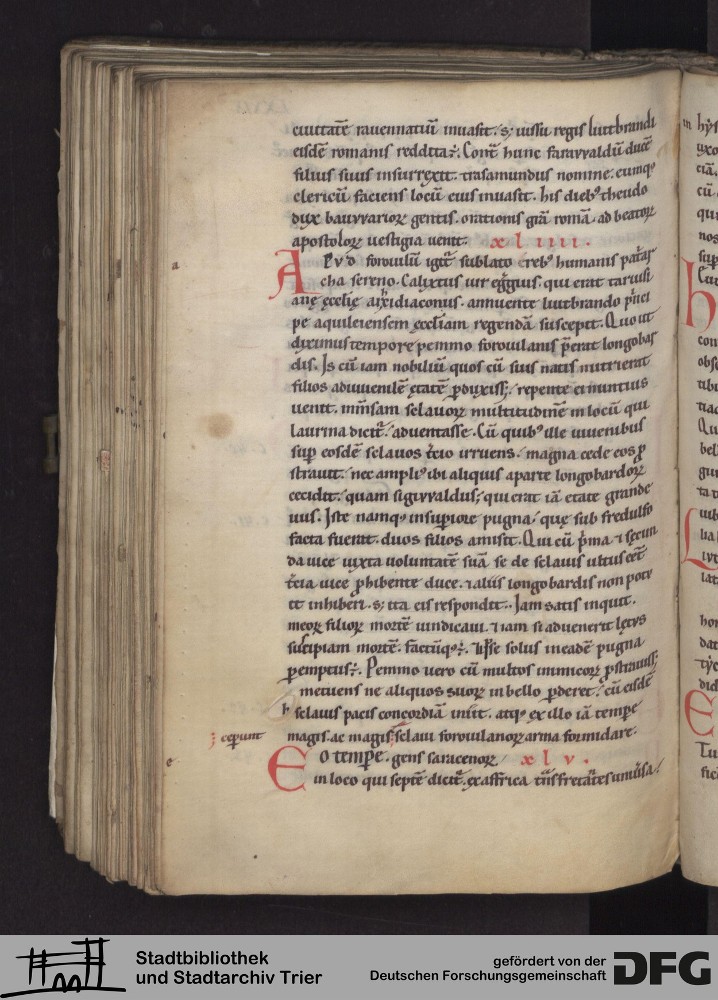 ciuitatē rauennatiū inuasit. s; iussu regis luitbrandi
eisdē romanis reddita ÷. Cont̄ hunc farauualdū ducē
filius suus insurrexit. trasamundus nomine. eumq;
clericū faciens locū eius inuasit. his dieb; theudo
dux bauuuarioꝝ gentis. orationis grā romā. ad beatoꝝ
apostoloꝝ uestigia uenit. xl iiii.
APVD foroiuliū igit̄ sublato ereb; humanis pat̄ar
cha sereno. Calyxtus uir egregius. qui erat taruisi
anę ęcclię archidiaconus. annuente luitbrando p̄nci
pe aquileiensem ęccliam regendā suscepit. Quo ut
diximus tempore pemmo foroiulanis p̄erat longobar
dis. Is cū iam nobiliū quos cū suis natis nutrierat
filios adiuuenilē ętatē ꝑduxiss; repente ei nuntius
uenit. inm̄sam sclauoꝝ multitudinē in locū qui
laurina dicit̄ aduentasse. Cū quib; ille iuuenibus
suꝑ eosdē sclauos t̄cio irruens. magna cede eos ꝓ
strauit. nec ampli; ibi aliquis aparte longobardoꝝ
cecidit. quam siguualdus; qui erat iā etate grande
uus. Iste namq; insuꝑiore pugna. quę sub fredulfo
facta fuerat. duos filios amisit. Qui cū p̄ma ⁊ secun
da uice iuxta voluntatē suā se de sclauis ultus eēt
t̄cia uice ꝓhibente duce. ⁊ aliis longobardis non potu
it inhiberi. s; ita eis respondit. Iam satis inquit.
meoꝝ filioꝝ mortē uindicaui. ⁊ iam si aduenerit lętus
suscipiam mortē. factūq; ÷. ⁊ ipse solus ineadē pugna
ꝑemptus ÷. Pemmo uero cū multos inimicoꝝ ꝓstrauiss;
metuens ne aliquos suoꝝ in bello ꝑderet. cū eisdē
h sclauis pacis concordiā iniit. atq; ex illo iā tempe
ceꝑunt
magis ac magis sclaui foroiulanoꝝ arma formidare.
EO tempe. gens saracenoꝝ xl v.
in loco qui septē dicit̄. exaffrica t̄nsfretātes uniūsā
Stadtbibliothek
und Stadtarchiv Trier
gefördert von der
Deutschen Forschungsgemeinschaft
DFG